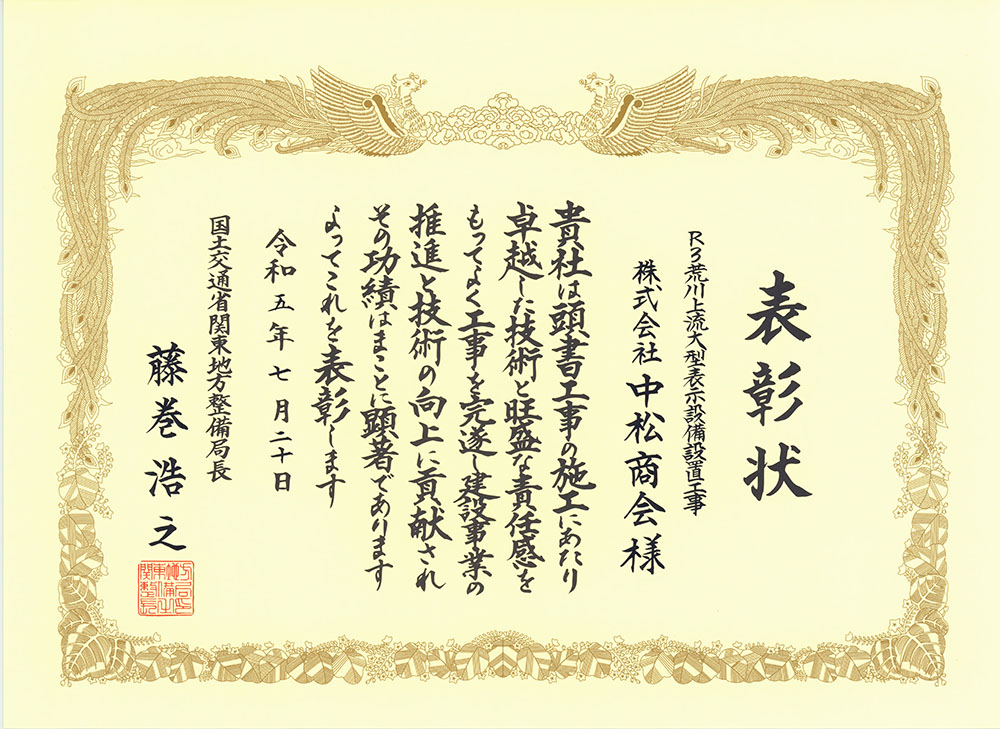 表彰状
R3荒川上流大型表示設備設置工事
株式会社 中松商会様
貴社は頭書工事の施工にあたり
卓越した技術と旺盛な責任感を
もってよく工事を完遂し建設事業の
推進と技術の向上に貢献され
その功績はまことに顕著であります
よってこれを表彰します
令和五年七月二十日
国土交通省関東地方整備局長
藤巻浩之